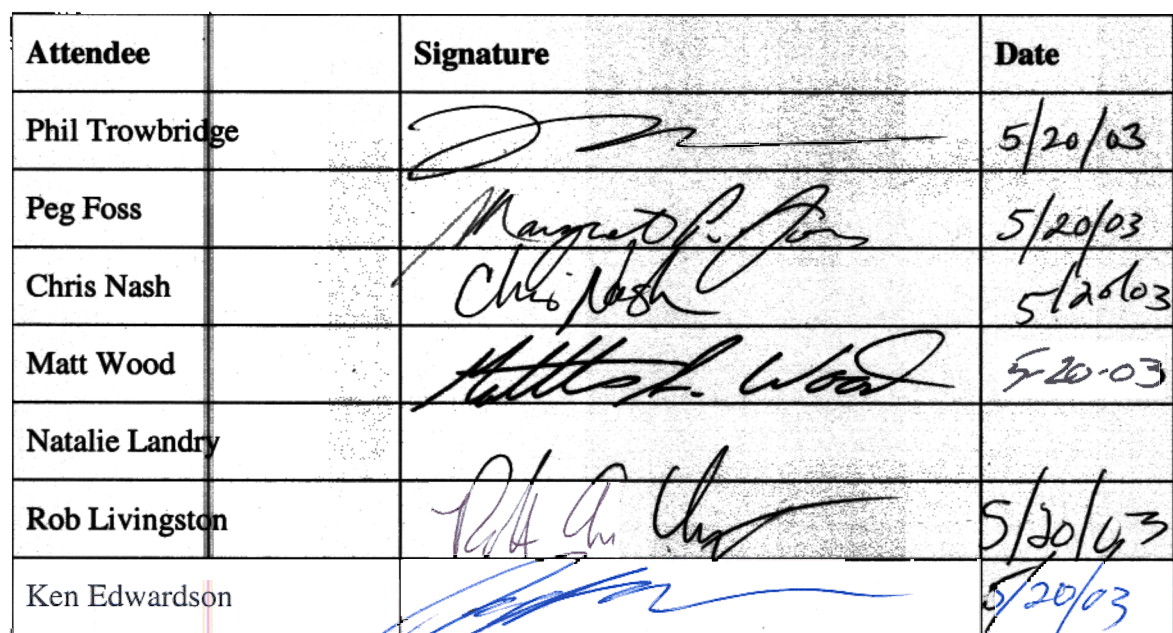 Attendee Signature Date
Phil Trowbridge 5/20/03
Peg Foss Margaret P. Foss 5/20/03
Chris Nash Chris Nash 5/20/03
Matt Wood Matthew R. Wood 5-20-03
Natalie Landry
Rob Livingston 5/20/03
Ken Edwardson 5/20/03